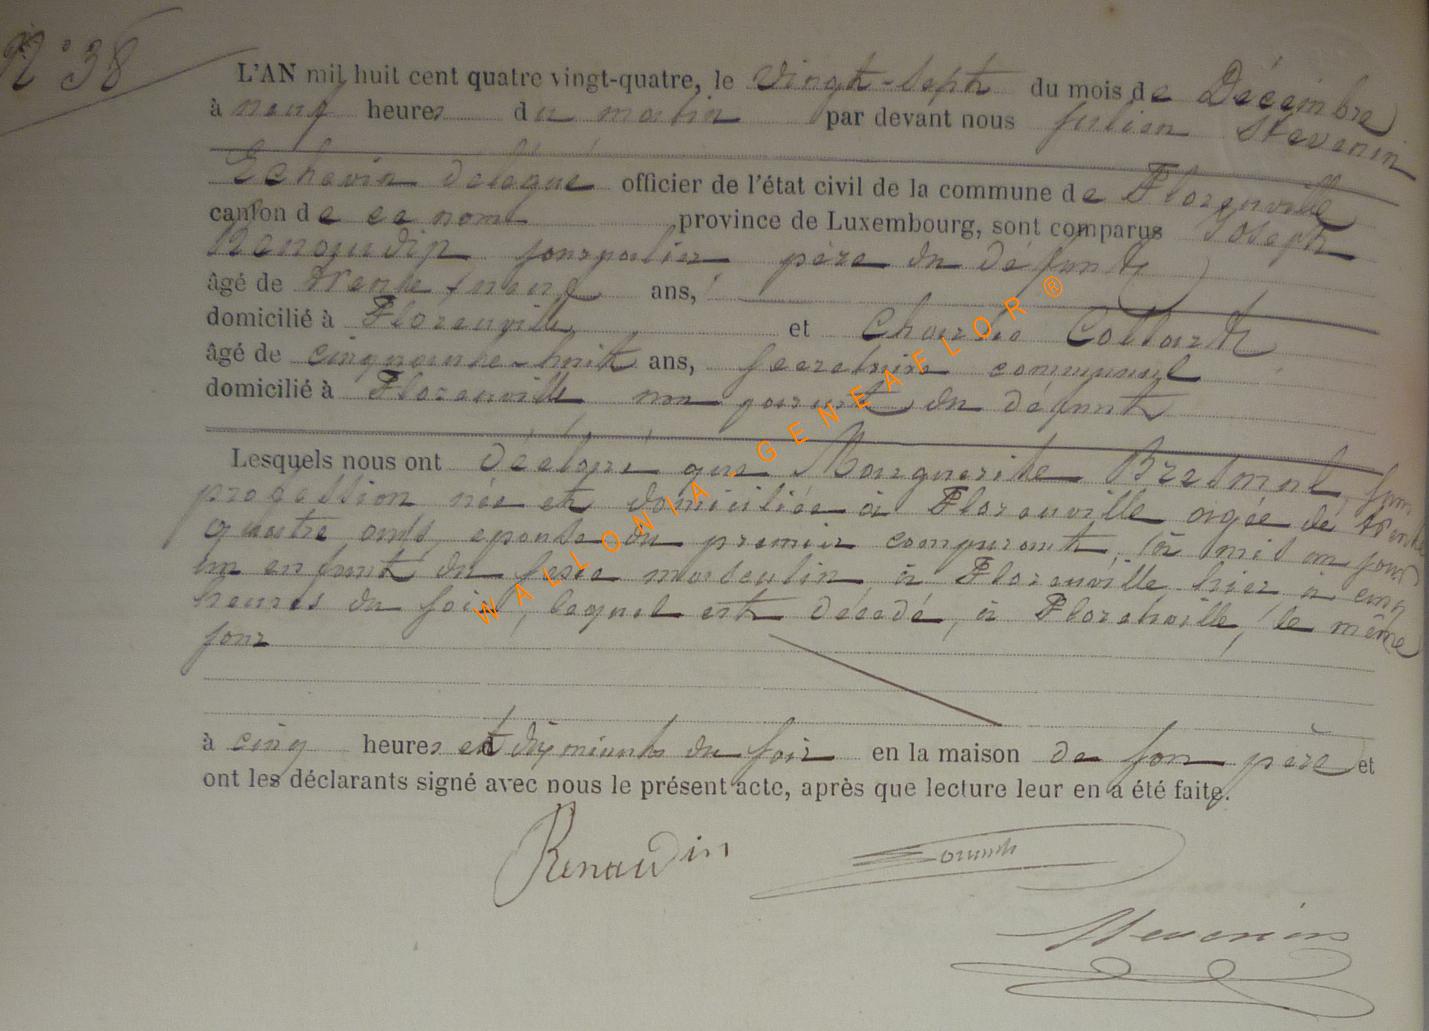 N° 38
L'AN mil huit cent quatre vingt-quatre, le vingt-sept du mois de Décembre
à neuf heures du matin par devant nous Julien Stevenin
Echevin délégué officier de l'état civil de la commune de Florenville
canton de ce nom province de Luxembourg, sont comparus Joseph
Renaudin journalier père du défunt
âgé de trente-neuf ans,
domicilié à Florenville et Charles Collart
âgé de cinquante-huit ans, secretaire communal
domicilié à Florenville non parent du défunt
Lesquels nous ont déclaré que Marguerite Bresmal, sans
profession née et domiciliée à Florenville agée de trente
quatre ans, epouse du premier comparant, a mis au jour
un enfant du sexe masculin à Florenville hier à cinq
heures du soir, lequel est décédé, à Florenville, le même
jour
à cinq heures et dix minutes du soir en la maison de son père et
ont les déclarants signé avec nous le présent acte, après que lecture leur en a été faite.
Renaudin
Stevenin
WALLONIA-GENEAFLOR ®